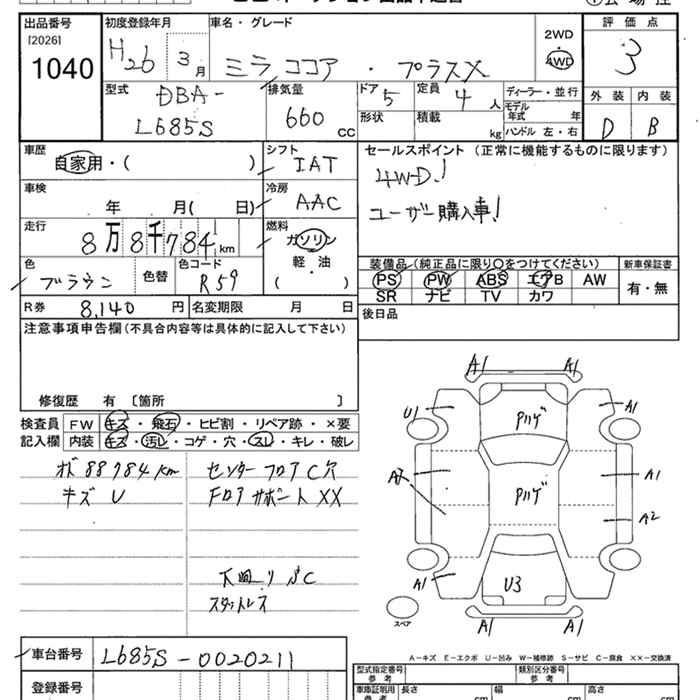 出品番号
[2026]
1040
初度登録年月
H26 3月
車名・グレード
ミラ ココア ・ プラスX
2WD
・
4WD
評価点
3
外装 内装
D B
型式
DBA-
L685S
排気量
660 CC
ドア 5
定員 4人
ディーラー・並行
形状
積載 kg
モデル年式 年
ハンドル 左・右
車歴
自家用・( )
シフト
IAT
セールスポイント (正常に機能するものに限ります)
4WD!
ユーザー購入車!
車検
年 月( 日)
冷房
AAC
走行
8万8千784km
燃料
ガソリン
・
軽・油
( )
色
ブラウン
色替
色コード
R59
装備品(純正品に限り○をつけてください)
PS PW ABS エアB AW
SR ナビ TV カワ
新車保証書
有・無
R券 8,140 円
名変期限 月 日
後日品
注意事項申告欄(不具合内容等は具体的に記入して下さい)
修復歴 有 〔箇所 〕
検査員
記入欄
FW キズ ・ 飛石 ・ ヒビ割 ・ リペア跡 ・ ×要
内装 キズ・汚レ・コゲ・穴・スレ・キレ・破レ
88784km
キズ U
センターフロアC穴
Fロアサポート XX
下廻り SC
スタットレス
A1 A1
U1 A1
Pハゲ
A1
Pハゲ
A2
A1 U3
A1 A1
スペア
A−キズ E−エクボ U−凹み W−補修跡 S−サビ C−腐食 XX−交換済
車台番号 L685S-0020211
登録番号
型式指定番号
参考
類別区分番号
参考
車庫証明用
参考
長さ cm
幅 cm
高さ cm